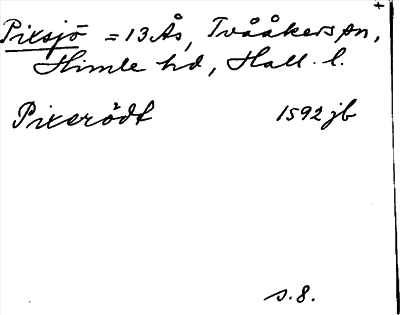 Pixsjö = 13 Ås, Tvååkers sn,
Himle hd, Hall. l.
Pixerödt 1592 jb
s. 8.